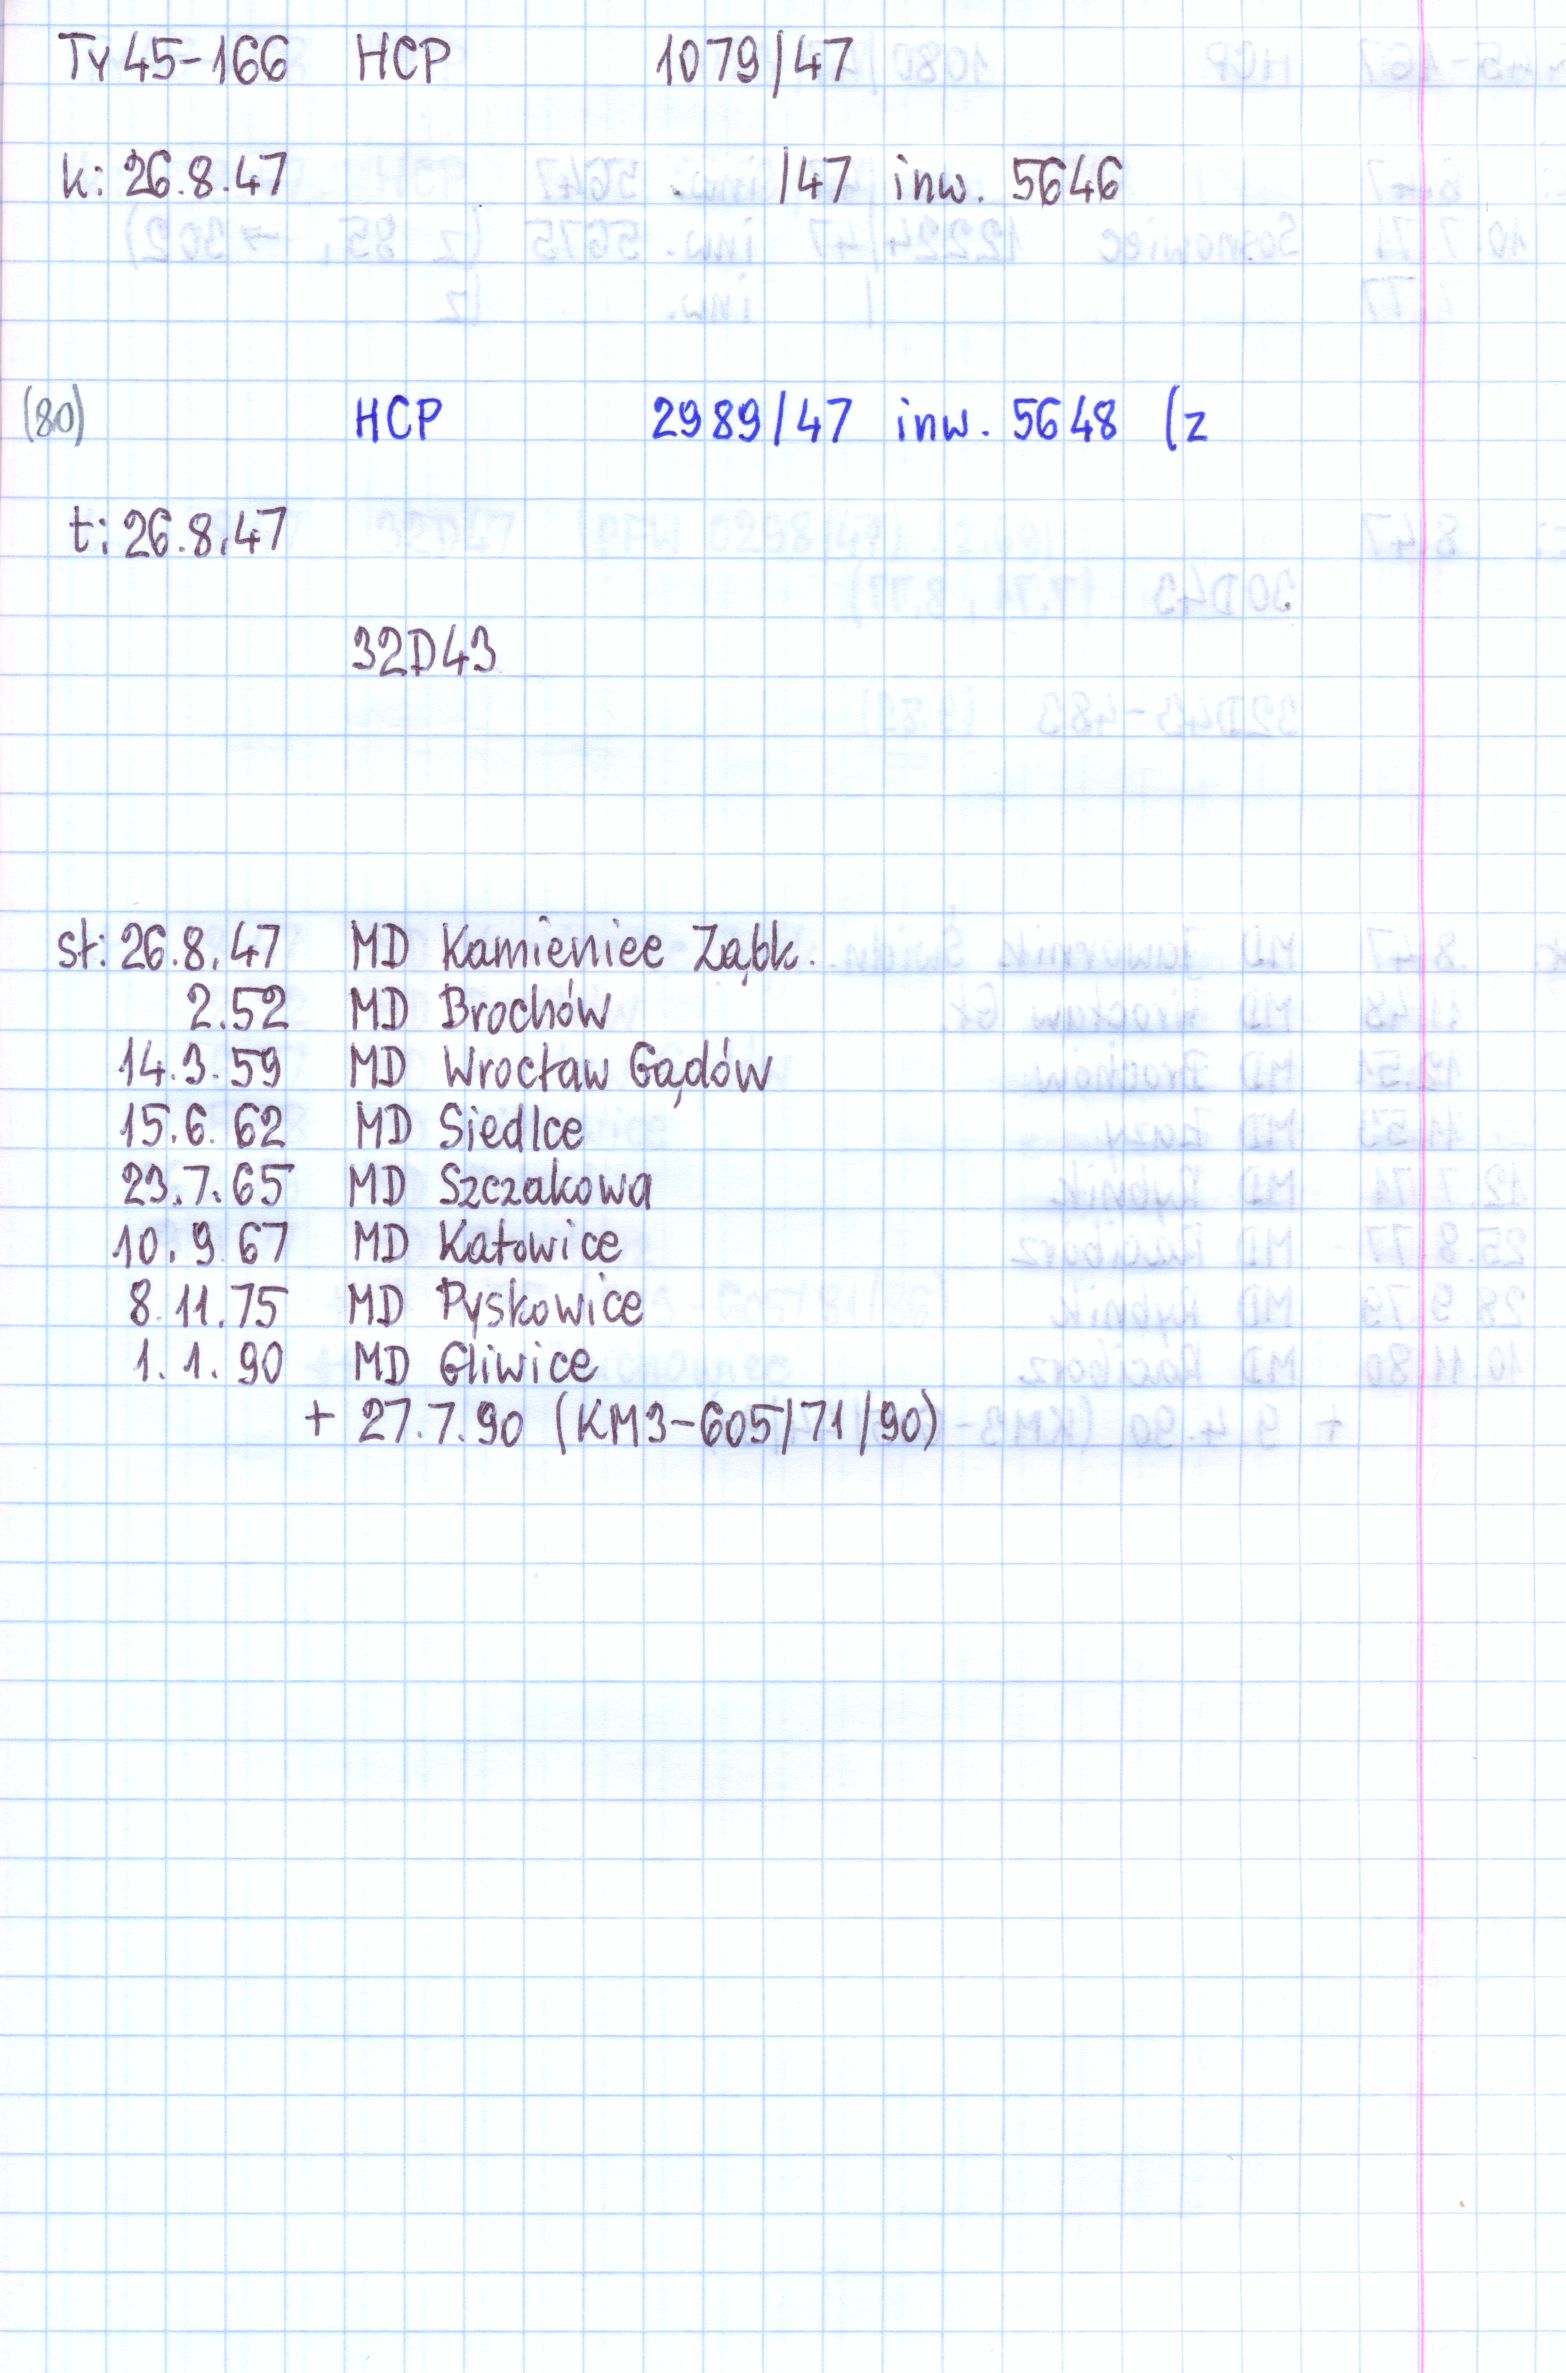 Ty45-166 HCP 1079/47
k: 26.8.47 /47 inw. 5646
(80) HCP 2989/47 inw. 5648 (z
t: 26.8.47
32D43
st: 26.8.47 MD Kamieniec Ząbk.
2.52 MD Brochów
14.3.59 MD Wrocław Gądów
15.6.62 MD Siedlce
23.7.65 MD Szczakowa
10.9.67 MD Katowice
8.11.75 MD Pyskowice
1.1.90 MD Gliwice
+ 27.7.90 (KM3-605/71/90)